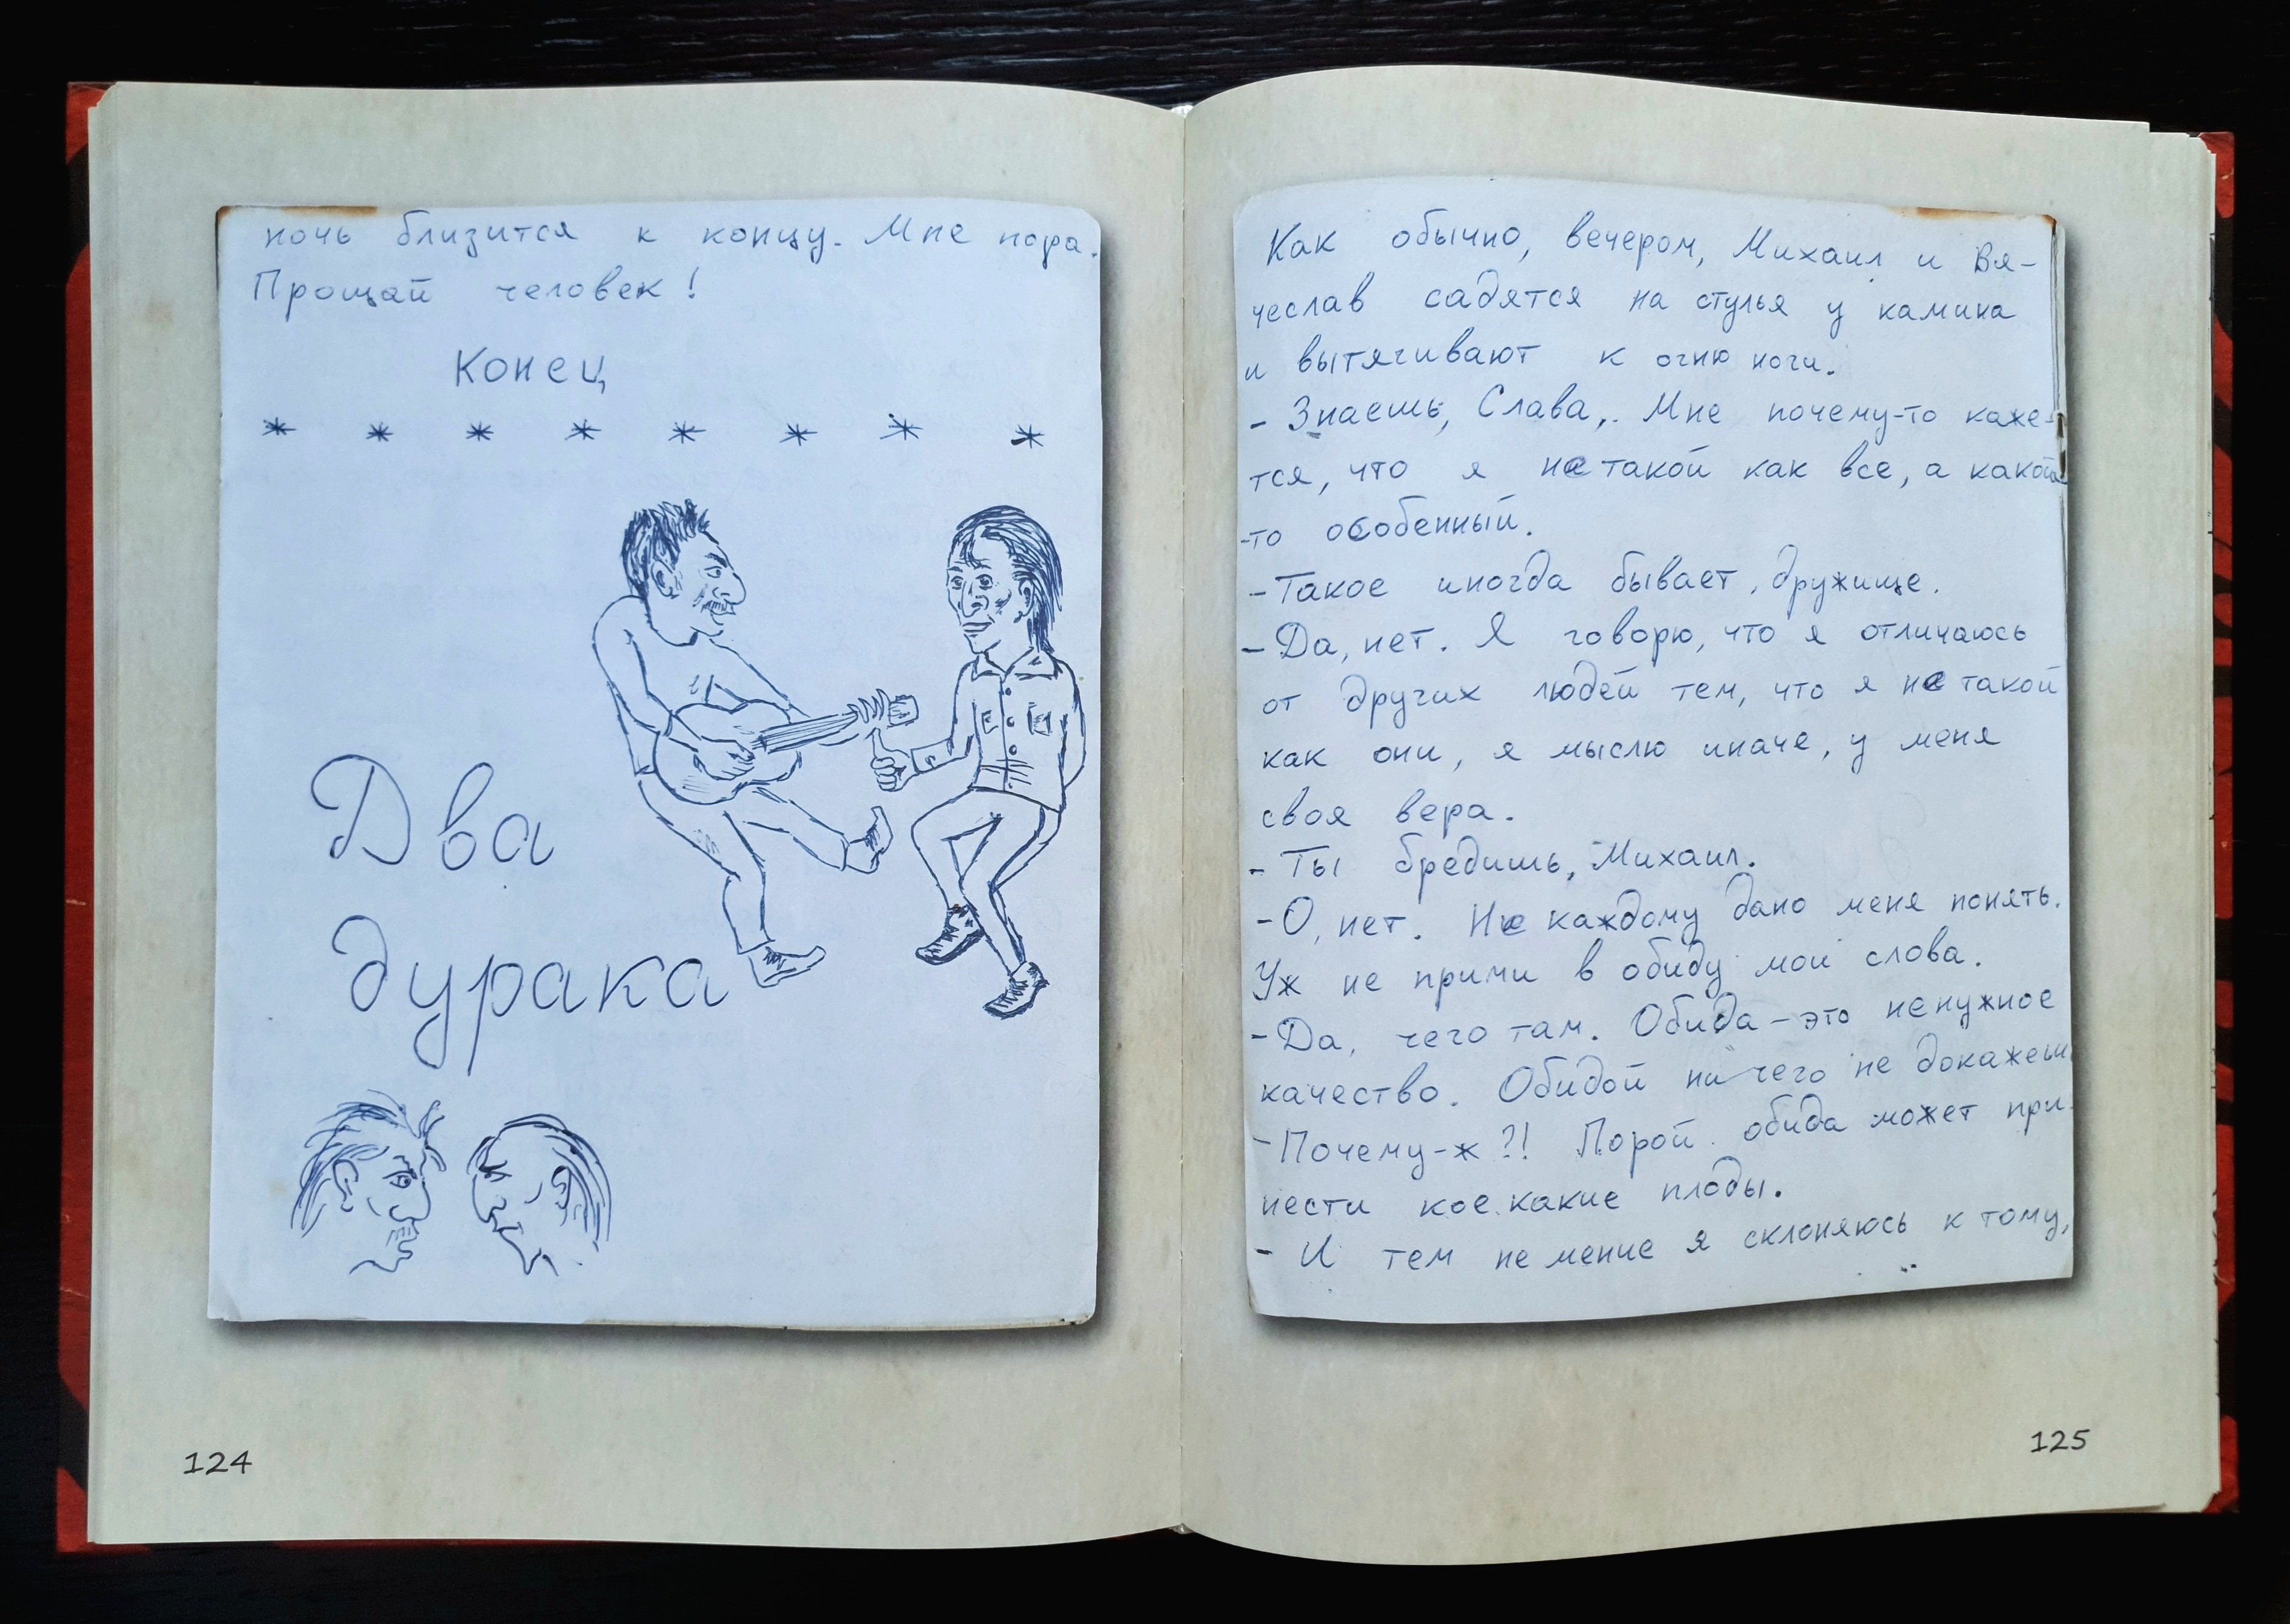 ночь близится к концу. Мне пора.
Прощай человек!
Конец
* * * * * * * *
Два
дурака
124
Как обычно, вечером, Михаил и Вя-
чеслав садятся на стулья у камина
и вытягивают к огню ноги.
- Знаешь, Слава,. Мне почему-то каже-
тся, что я не такой как все, а какой
-то особенный.
- Такое иногда бывает, дружище.
- Да, нет. Я говорю, что я отличаюсь
от других людей тем, что я не такой
как они, я мыслю иначе, у меня
своя вера.
- Ты бредишь, Михаил.
- О, нет. Не каждому дано меня понять.
Уж не прими в обиду мои слова.
- Да, чего там. Обида - это ненужное
качество. Обидой ни чего не докажеш
- Почему-ж?! Порой обида может при-
нести кое какие плоды.
- И тем не мение я склоняюсь к тому,
125